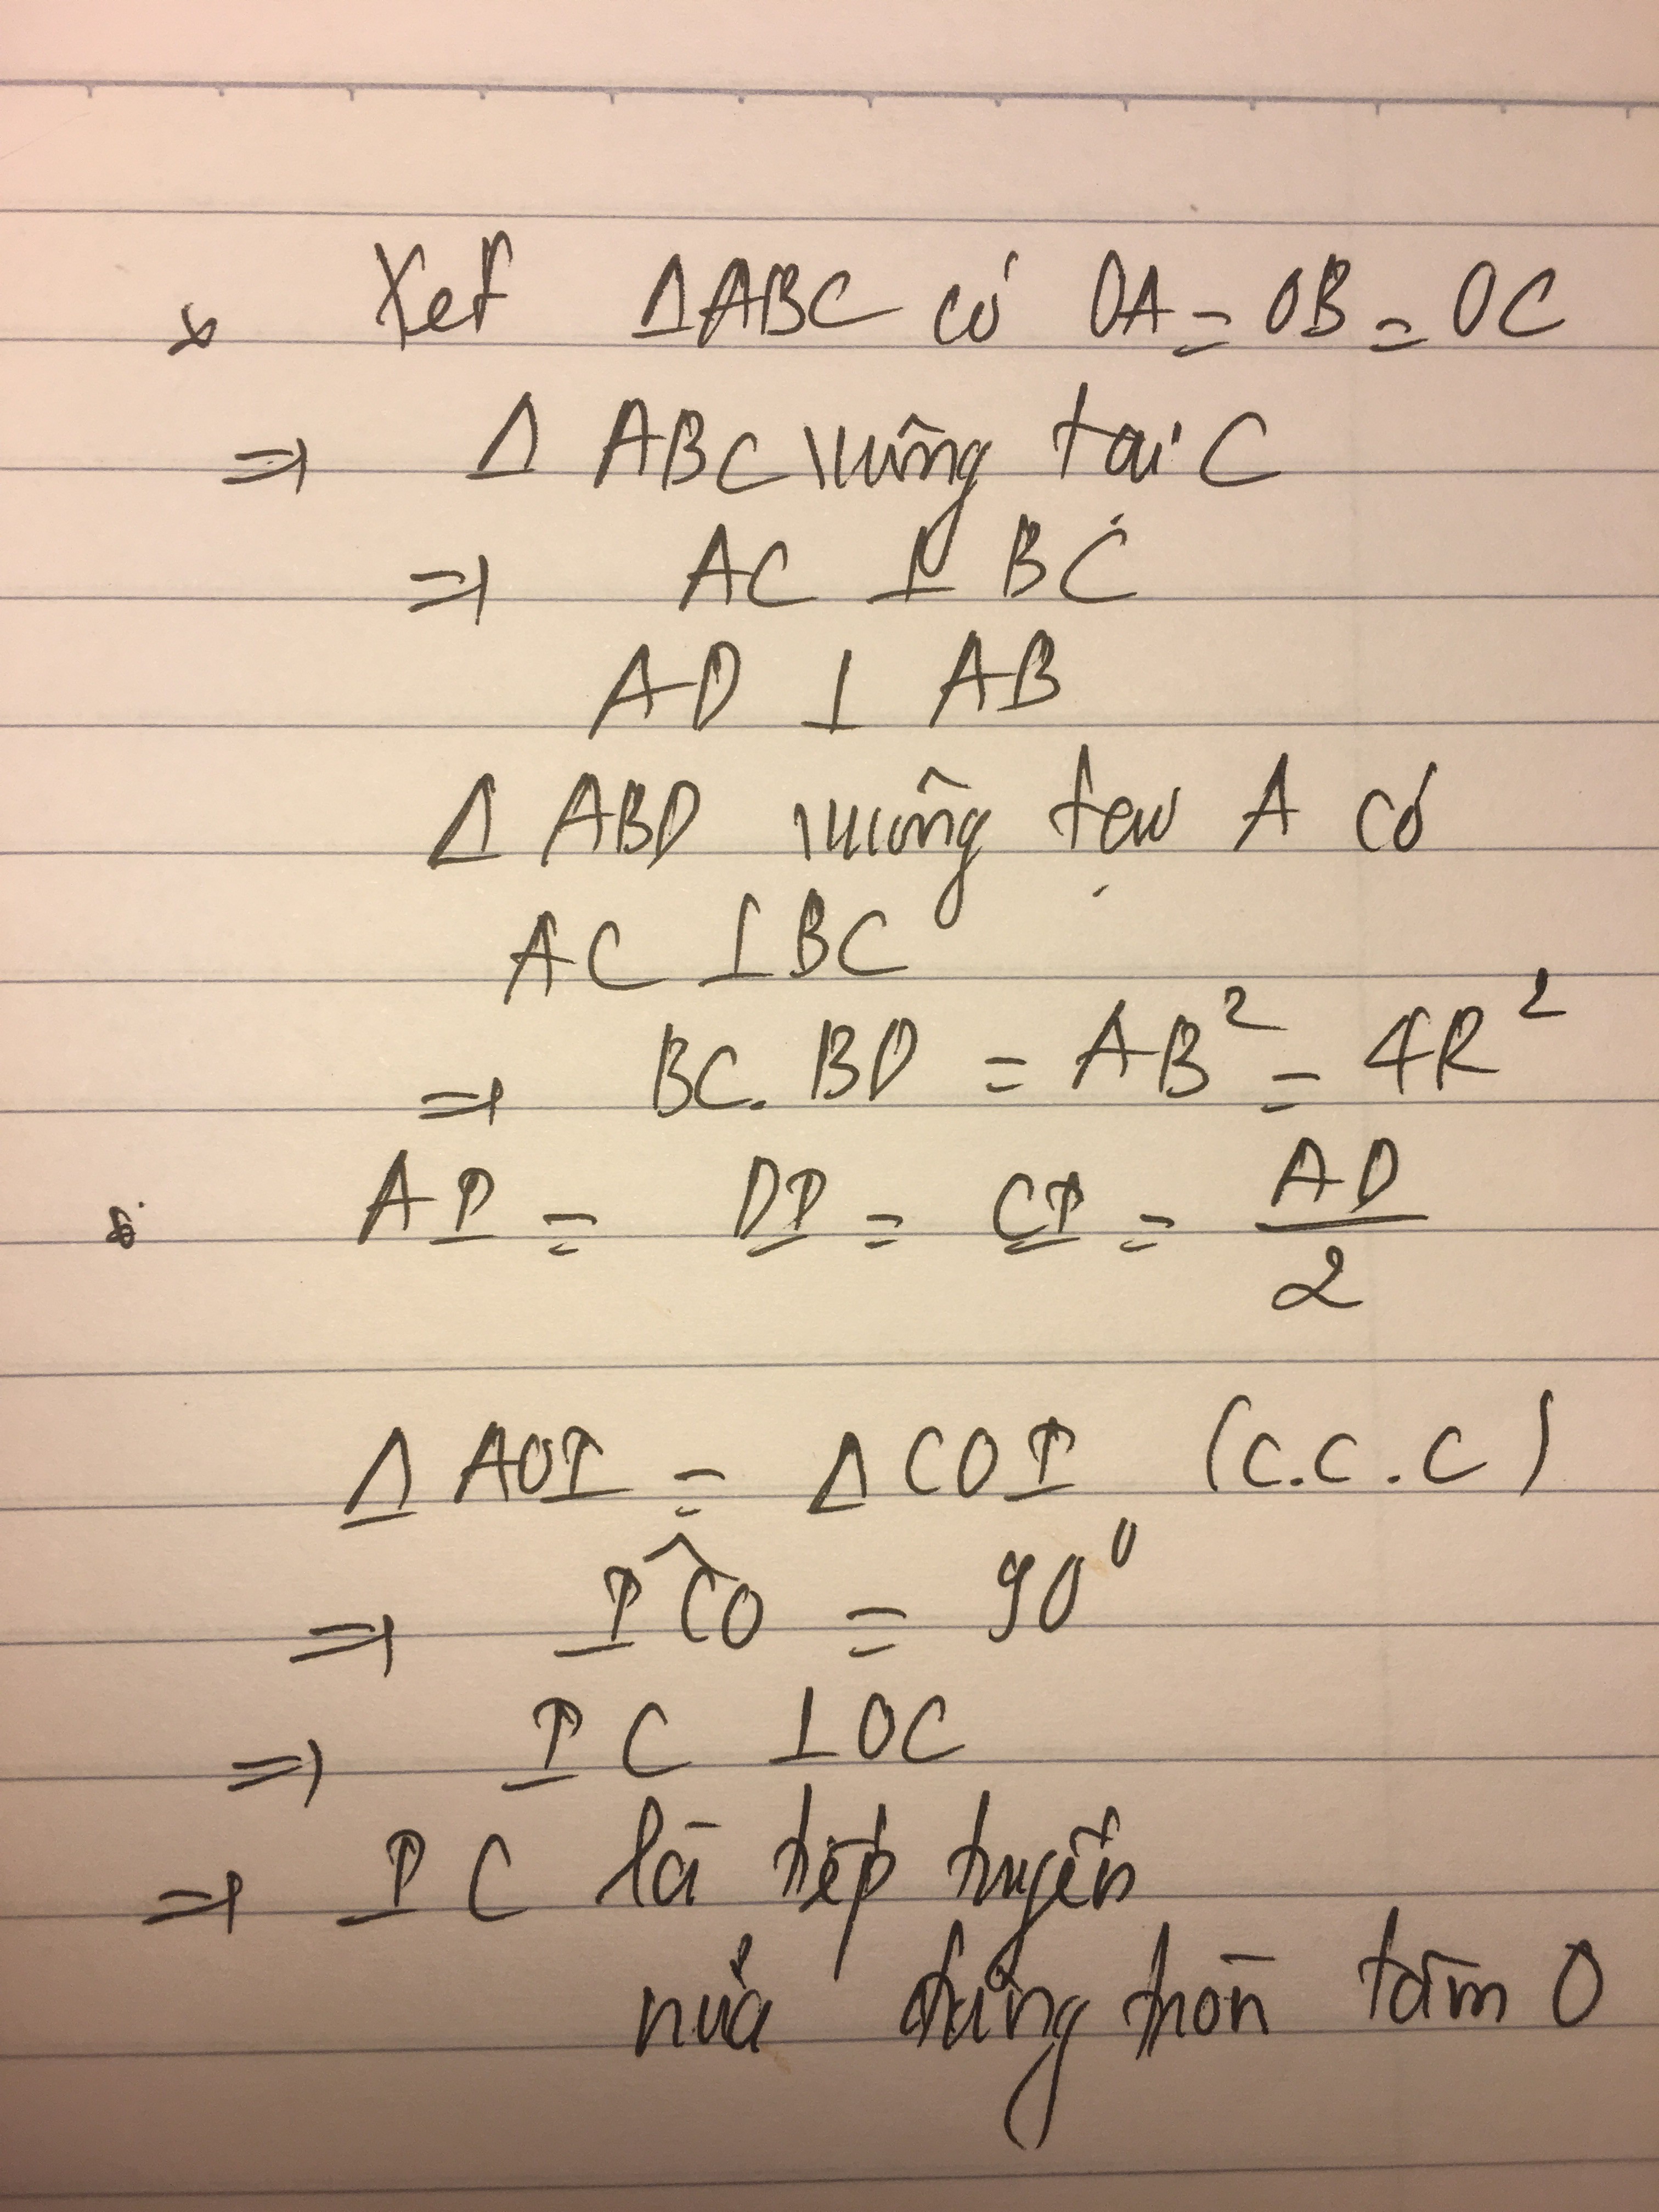 * Xét ΔABC có OA = OB = OC
⇒ Δ ABC vuông tại C
⇒ AC ⊥ BC
AD ⊥ AB
Δ ABD vuông tại A có
AC ⊥ BC
⇒ BC. BD = AB² = 4R²
* AI = DI = CI = AD/2
Δ AOI = Δ COI (c.c.c)
⇒ ICO^ = 90⁰
⇒ IC ⊥ OC
⇒ IC là tiếp tuyến
nửa đường tròn tâm O